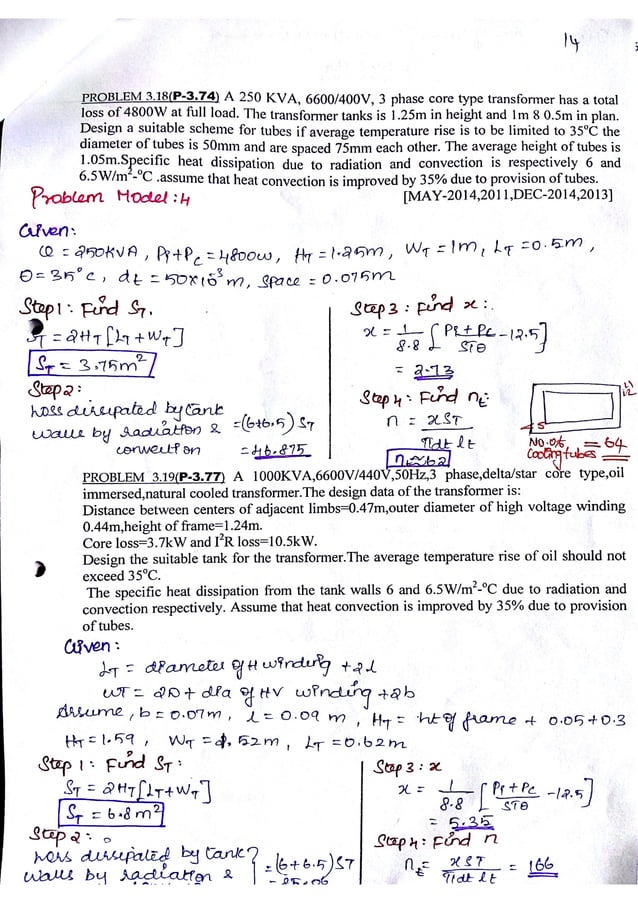 14
PROBLEM 3.18(P-3.74) A 250 KVA, 6600/400V, 3 phase core type transformer has a total
loss of 4800W at full load. The transformer tanks is 1.25m in height and 1m 8 0.5m in plan.
Design a suitable scheme for tubes if average temperature rise is to be limited to 35°C the
diameter of tubes is 50mm and are spaced 75mm each other. The average height of tubes is
1.05m.Specific heat dissipation due to radiation and convection is respectively 6 and
6.5W/m²-°C .assume that heat convection is improved by 35% due to provision of tubes.
Problem Model : 4
[MAY-2014,2011,DEC-2014,2013]
Given:
Q = 250KVA, Pi+Pc = 4800w, HT = 1.25m, WT = 1m, LT = 0.5m,
θ = 35°c, dt = 50x10⁻³m, space = 0.075m
Step 1: Find ST.
ST = 2HT[LT+WT]
ST = 3.75m²
Step 2:
Loss dissipated by tank
walls by radiation & = (6+6.5) ST
convection = 46.875
Step 3: Find x:.
x = 1/8.8 [Pi+Pc/STθ - 12.5]
= 2.73
Step 4: Find nt
n = xST/πdt lt
n ≈ 62
No. of = 64
cooling tubes
PROBLEM 3.19(P-3.77) A 1000KVA,6600V/440V,50Hz,3 phase,delta/star core type,oil
immersed,natural cooled transformer.The design data of the transformer is:
Distance between centers of adjacent limbs=0.47m,outer diameter of high voltage winding
0.44m,height of frame=1.24m.
Core loss=3.7kW and I²R loss=10.5kW.
Design the suitable tank for the transformer.The average temperature rise of oil should not
exceed 35°C.
The specific heat dissipation from the tank walls 6 and 6.5W/m²-°C due to radiation and
convection respectively. Assume that heat convection is improved by 35% due to provision
of tubes.
Given:
LT = diameter of H winding + 2l
WT = 2D + dia of HV winding + 2b
Assume, b = 0.07m, l = 0.09 m, HT = ht of frame + 0.05+0.3
HT = 1.59, WT = 1.52m, LT = 0.62m
Step 1: Find ST:
ST = 2HT[LT+WT]
ST = 6.8m²
Step 2:
Loss dissipated by tank
walls by radiation & = (6+6.5)ST
Step 3: x
x = 1/8.8 [Pi+Pc/STθ - 12.5]
= 5.35
Step 4: Find n
nt = xST/πdt lt = 166